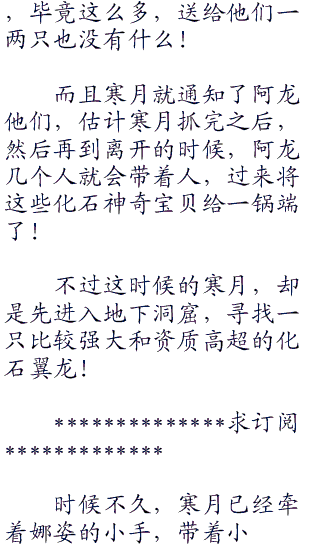 ，毕竟这么多，送给他们一
两只也没有什么！
而且寒月就通知了阿龙
他们，估计寒月抓完之后，
然后再到离开的时候，阿龙
几个人就会带着人，过来将
这些化石神奇宝贝给一锅端
了！
不过这时候的寒月，却
是先进入地下洞窟，寻找一
只比较强大和资质高超的化
石翼龙！
**************求订阅
*************
时候不久，寒月已经牵
着娜姿的小手，带着小